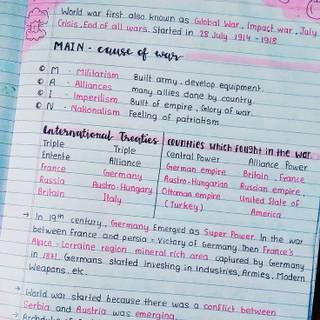 World war first also known as Global War, Impact war, July
Crisis, End of all wars. Started in 28 July 1914-1918
MAIN - cause of war
M - Militarism Built army, develop equipment.
A - Alliances many allies done by country.
I - Imperilism Built of empire, Glory of war.
N - Nationalism Feeling of patriatism.
International Treaties
Countries which fought in the war.
Triple Triple Central Power Alliance Power
Entente Alliance German empire Britain, France
France Germany Austro-Hungarian Russian empire,
Russia Austro-Hungary Ottoman empire United State of
Britain Italy (Turkey) America
→ In 19th century, Germany Emerged as Super Power. In the war
between France and persia = Victory of Germany. then France's
Alace-Lorraine region, mineral rich area captured by Germany
in 1871. Germans started investing in Industries, Armies, Modern
Weapons, etc.
→ World war started because there was a conflict between
Serbia and Austria was emerging.